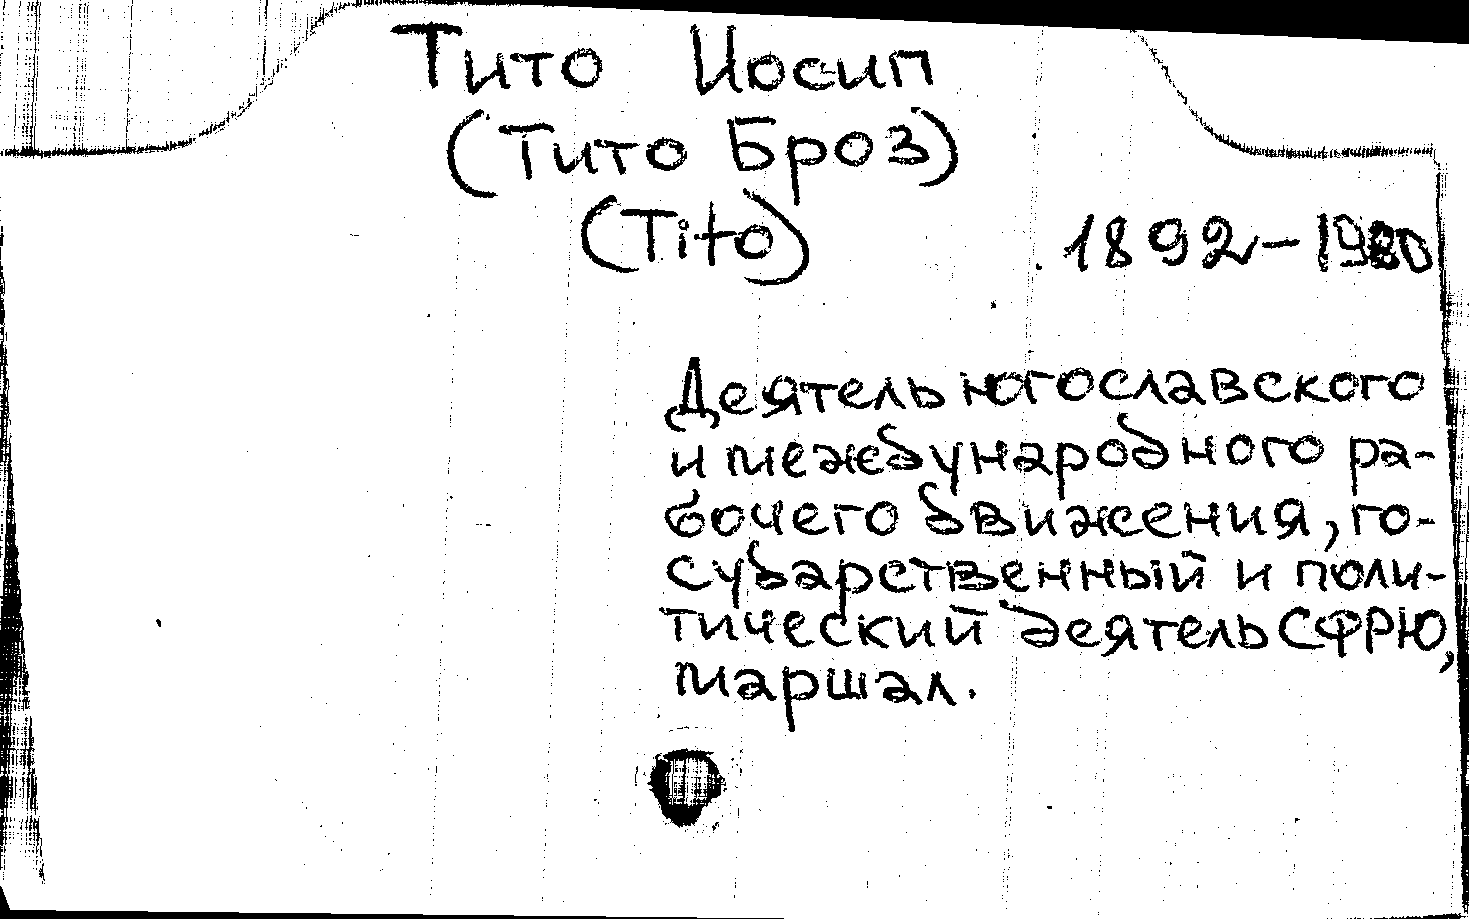 Тито Иосип
(Тито Броз)
(Tito)
1892-1980
Деятель югославского
и международного ра-
бочего движения, го-
сударственный и поли-
тический деятель СФРЮ,
маршал.